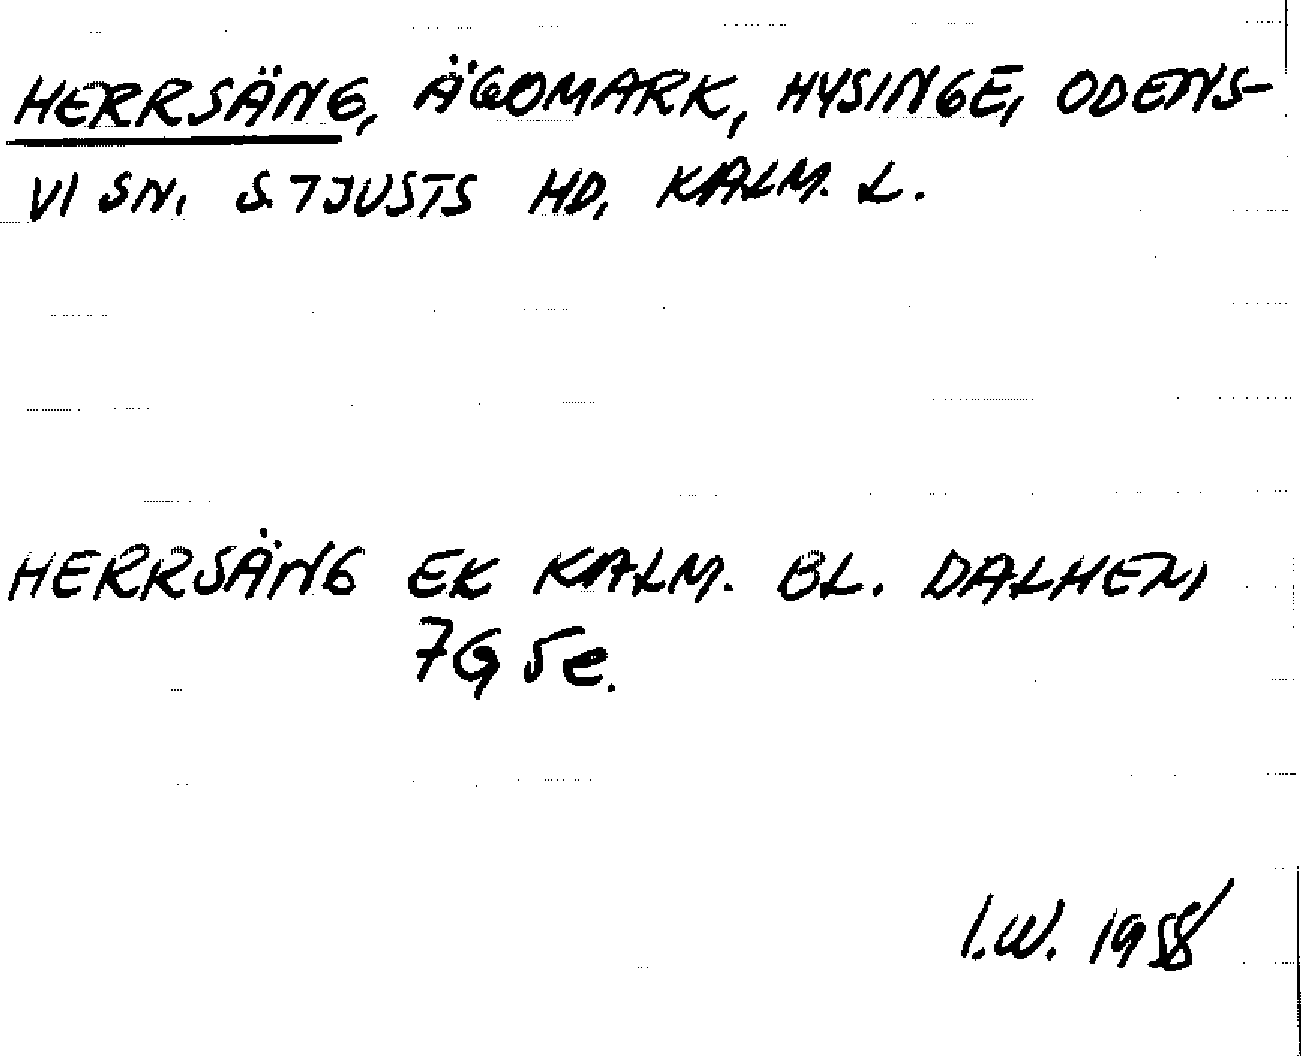 HERRSÄNG, ÄGOMARK, HYSINGE, ODENS-
VI SN. S. TJUSTS HD, KALM. L.
HERRSÄNG EK KALM. BL. DALHEM,
7G 5e.
I.W. 1958